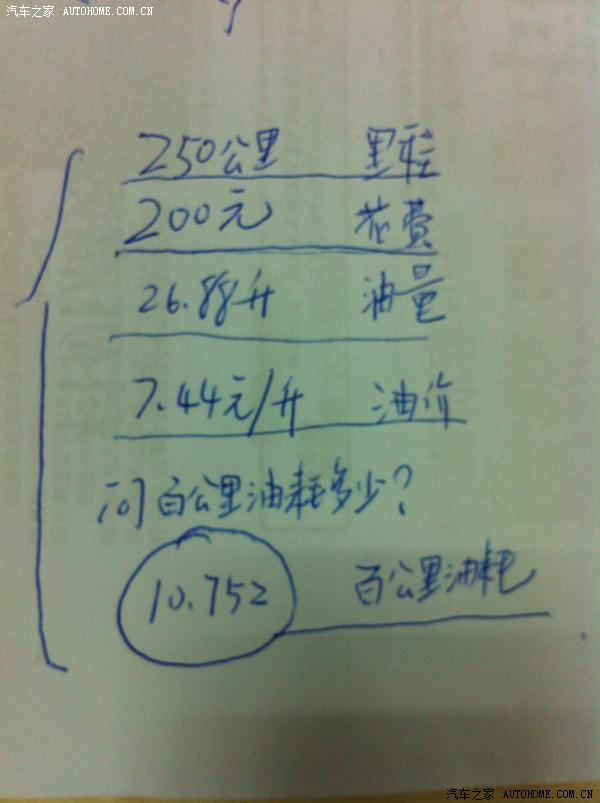 汽车之家 AUTOHOME.COM.CN
250公里 里程
200元 花费
26.88升 油量
7.44元/升 油价
问百公里油耗多少?
10.752 百公里油耗
汽车之家 AUTOHOME.COM.CN